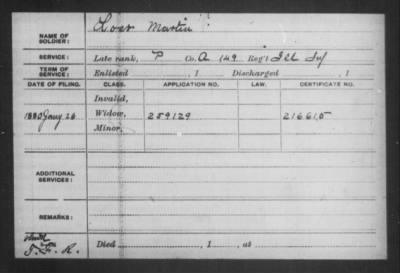 NAME OF SOLDIER: Loer Martin
SERVICE: Late rank, P Co. A 149 Reg't Ill Inf
TERM OF SERVICE: Enlisted , 1 Discharged , 1
DATE OF FILING. CLASS. APPLICATION NO. LAW. CERTIFICATE NO.
Invalid,
1880 Jany 26 Widow, 259129 216615
Minor,
ADDITIONAL SERVICES:
REMARKS:
Died , 1 , at